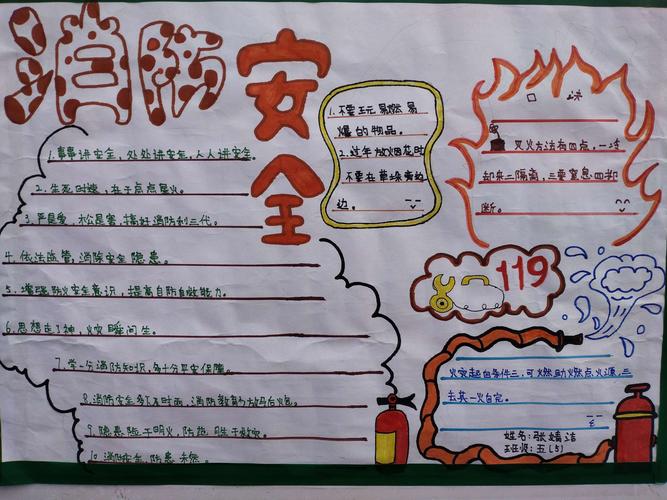 消防安全
1.事事讲安全，处处讲安全，人人讲安全。
2.生死时速，在于点点星火。
3.严是爱，松是害，搞好消防利三代。
4.依法监管，消除安全隐患。
5.增强防火安全意识，提高自防自救能力。
6.思想走了神，火灾瞬间生。
7.学一分消防知识，多十分平安保障。
8.消防安全多 不时雨，消防教育 放马后炮。
9.隐患险于明火，防范胜于救灾。
10.消防安全，防患未然。
1.不要玩易燃易
爆的物品。
2.过年放烟花时
不要在草垛旁
边。
口诀
灭火方法有四点，一冷
却来二隔离，三要窒息四抑
断。
119
火灾起由条件三，可燃助燃点火源，三
去其一火自完。
姓名：张婧洁
班级：五（5）